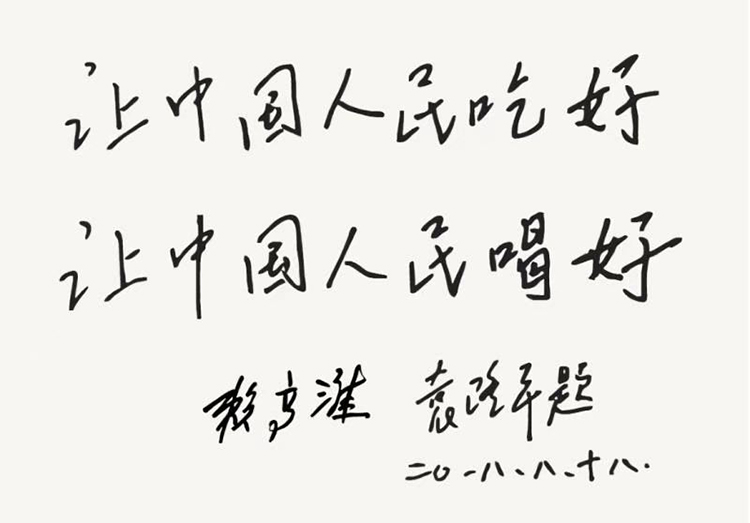 让中国人民吃好
让中国人民喝好
袁隆平题
二〇一八、八、十八.